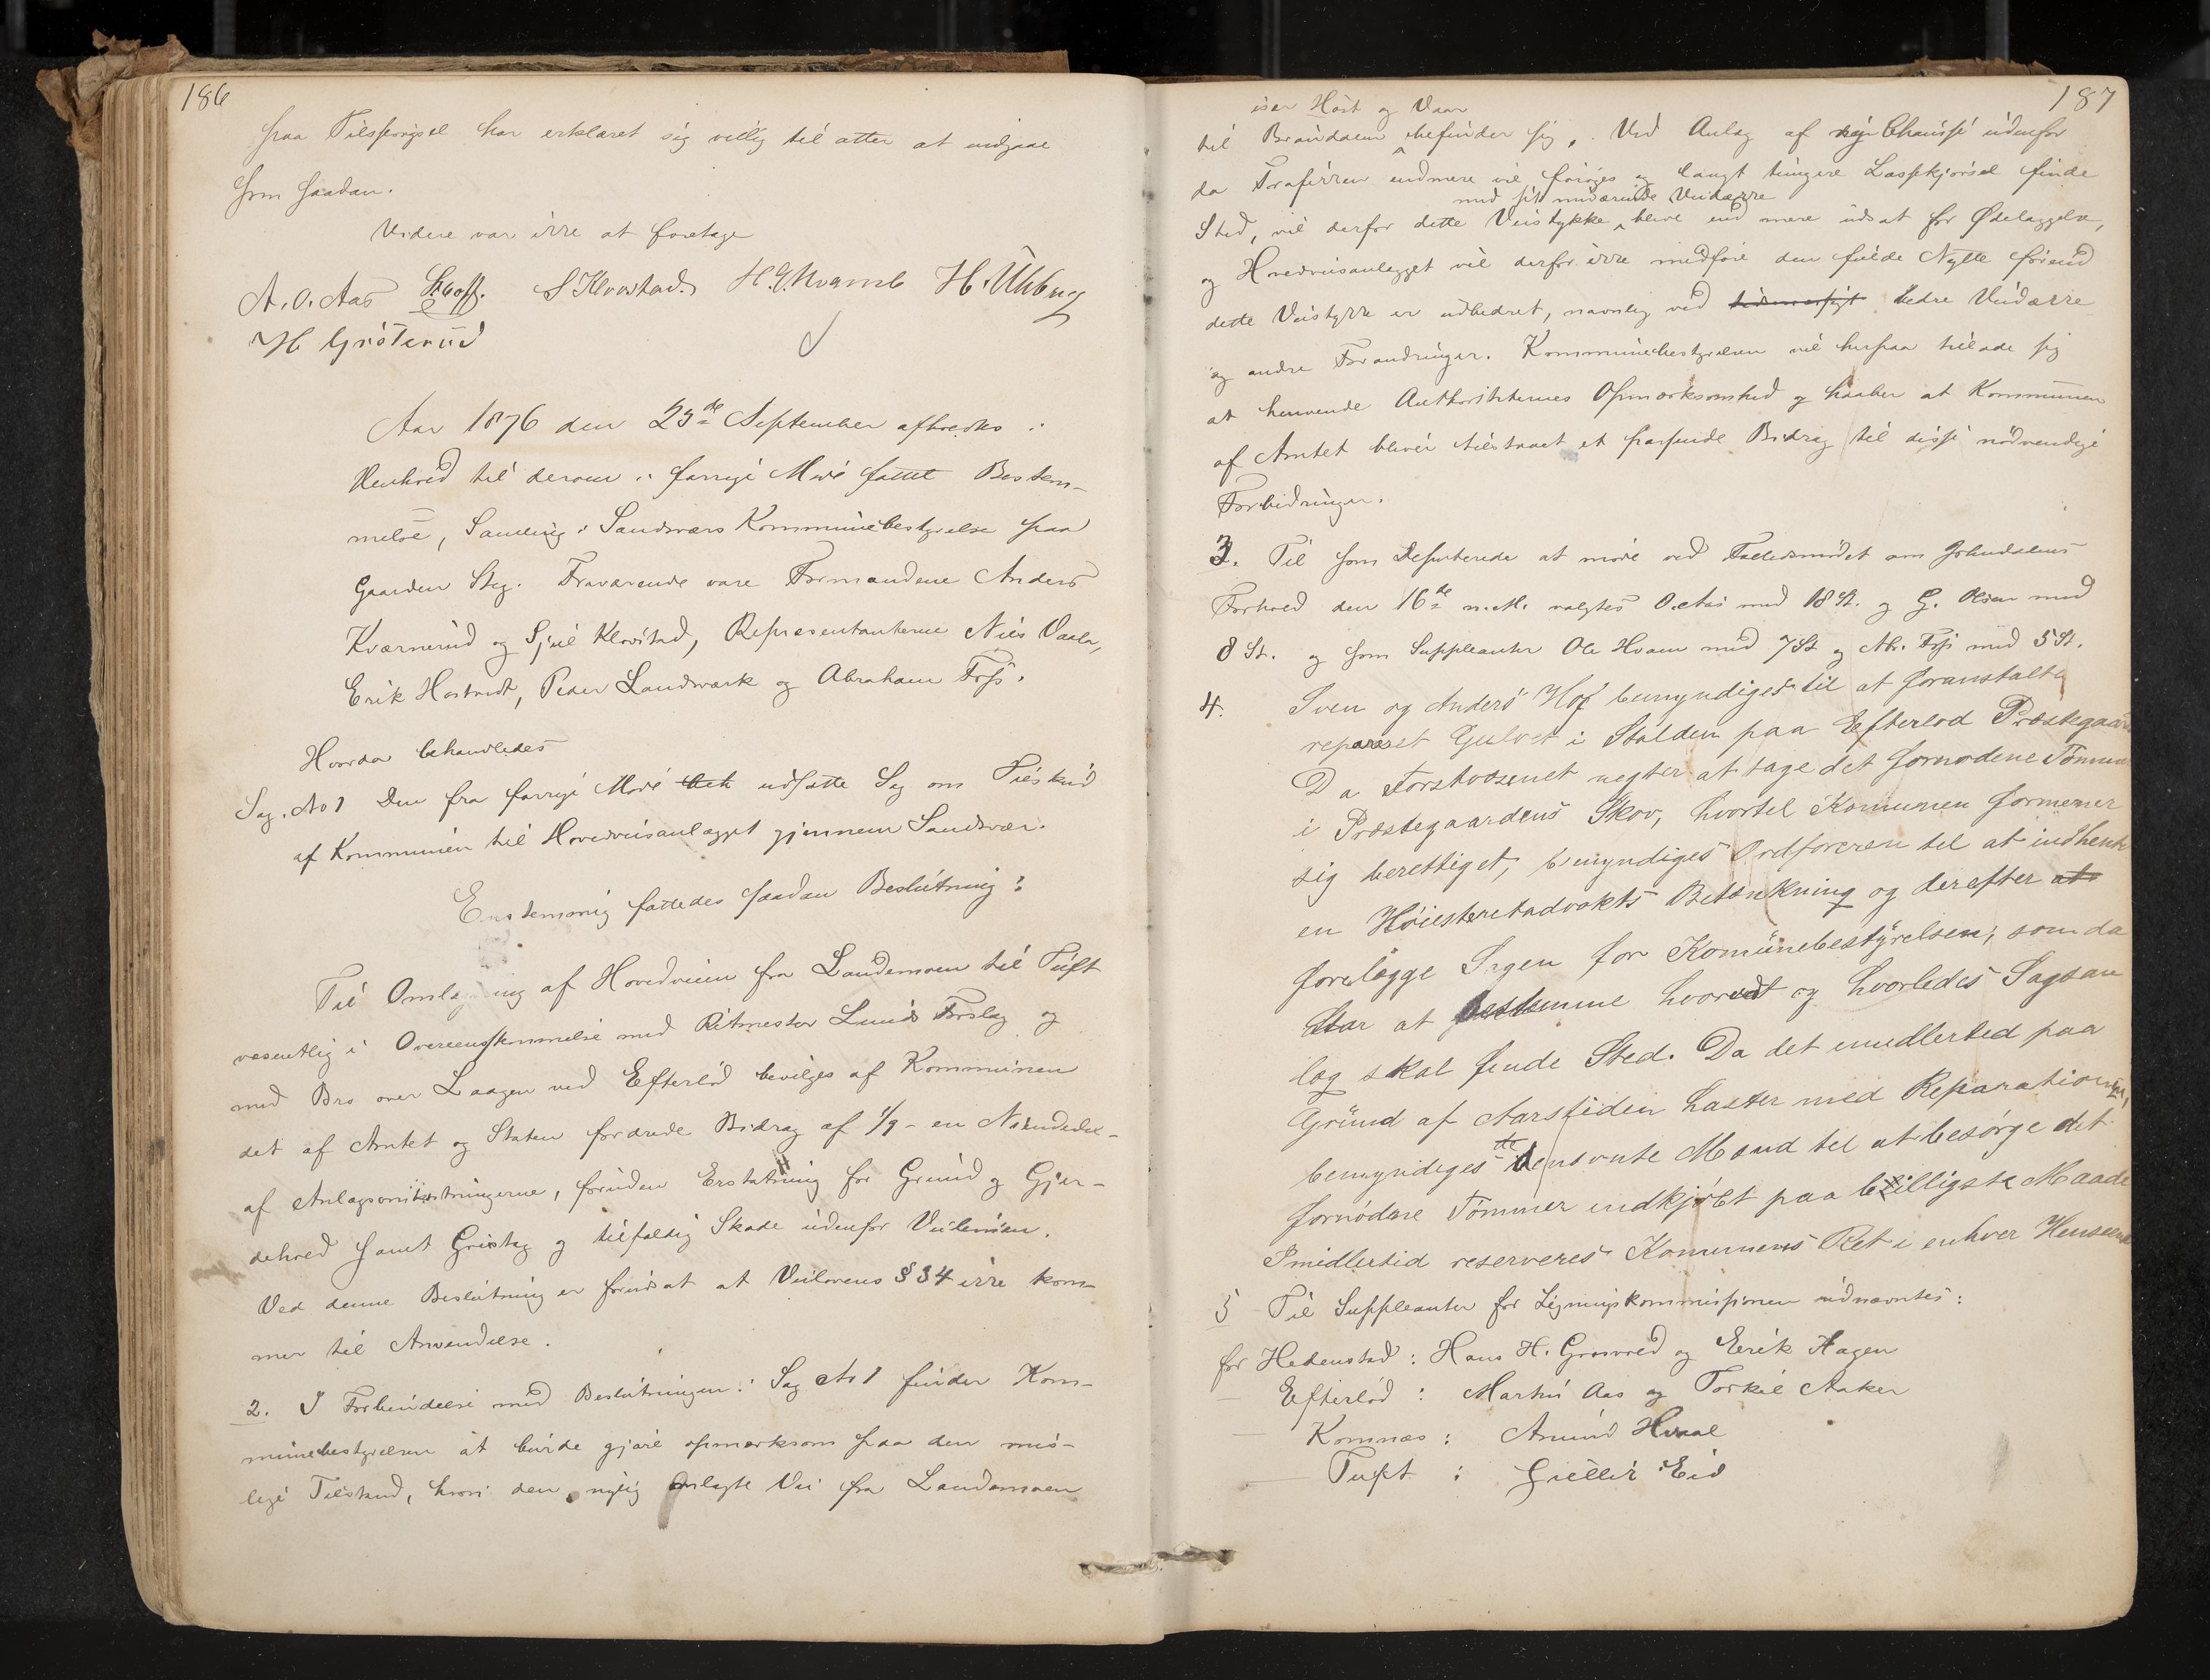 186
paa Tilspørgsel har erklæret sig villig til atter at indgaae
som saadan.
Videre var ikke at foretage
A. O. Aas S. Hoff. S Klovstad. H. G. Hvamb H. Ullberg
H Grøterud
Aar 1876 den 23de September afholdtes i
Henhold til derom i forrige Møde fattet Bestem-
melse, Samling i Sandsværs Kommunebestyrelse paa
Gaarden Steg. Fraværende vare Formændene Anders
Kværnerud og Sjul Klovstad, Repræsentanterne Nils Vaala,
Erik Hostvedt, Peder Landsværk og Abraham Foss.
Hvorda behandledes
Sag. No 1 Den fra forrige Møde udsatte Sag om Tilskud
af Kommunen til Hovedveisanlægget gjennem Sandsvær.
Enstemmig fattedes saadan Beslutning:
Til Omlægning af Hovedveien fra Landemoen til Tuft
væsentlig i Overeensstemmelse med Ritmester Lunds Forslag og
med Bro over Laagen ved Efterlød bevilges af Kommunen
det af Amtet og Staten fordrede Bidrag af 1/9 - en Niendedel -
af Anlægsomkostningerne, foruden Erstatning for Grund og Gjer-
dehold samt Grustag og tilfældig Skade udenfor Veilinien.
Ved denne Beslutning er forudsat at Veilovens § 34 ikke kom-
mer til Anvendelse.
2. I Forbindelse med Beslutningen i Sag No 1 finder Kom-
munebestyrelsen at burde gjøre opmærksom paa den mis-
lige Tilstand, hvori den nylig omlagte Vei fra Landemoen
187
især Høst og Vaar
til Brauddalen befinder sig. Ved Anlæg af ny Chaussé udenfor
da Trafikken endmere vil forøges og langt tungere Læsskjørsel finde
med sit nuværende Veidække
Sted, vil derfor dette Veistykke blive end mere udsat for Ødelæggelse,
og Hovedveisanlægget vil derfor ikke medføre den fulde Nytte førend
dette Veistykke er udbedret, navnlig ved bedre Veidække
og andre Forandringer. Kommunebestyrelsen vil herpaa tillade sig
at henvende Authoriteternes Opmærksomhed og haaber at Kommunen
af Amtet bliver tilstaaet et passende Bidrag til disse nødvendige
Forbedringer.
3. Til som Deputerede at møde ved Fællesmødet om Jondalens
Forhold den 16de n. M. valgtes O. Aas med 18 St. og G. Olsen med
8 St. og som Suppleanter Ole Hvam med 7 St og Abr. Foss med 5 St.
4. Sven og Anders Hof bemyndiges til at foranstalte
repareret Gulvet i Stalden paa Efterlød Præstegaard
Da Forstvæsenet negter at tage det fornødene Tømmer
i Præstegaardens Skov, hvortil Kommunen formener
sig berettiget, bemyndiges Ordføreren til at indhente
en Høiesteretadvokts Betænkning og derefter
forelægge Sagen for Komünebestÿrelsen, som da
har at bestemme hvorvidt og hvorledes Sagsan
læg skal finde Sted. Da det imidlertid paa
Gründ af Aarstiden haster med Reparationen,
bemyndiges de nevnte Mænd til at besørge det
fornødne Tømmer indkjøbt paa billigste Maade
Imidlertid reserveres Komunens Ret i enhver Henseende
5 Til Suppleanter for Ligningskommissionen udnævntes:
for Hedenstad: Hans H. Grosvold og Erik Hagen
— Efterlød: Martin Aas og Torkil Aaker
— Komnæs: Amund Hvaal
— Tuft: Gullik Eid